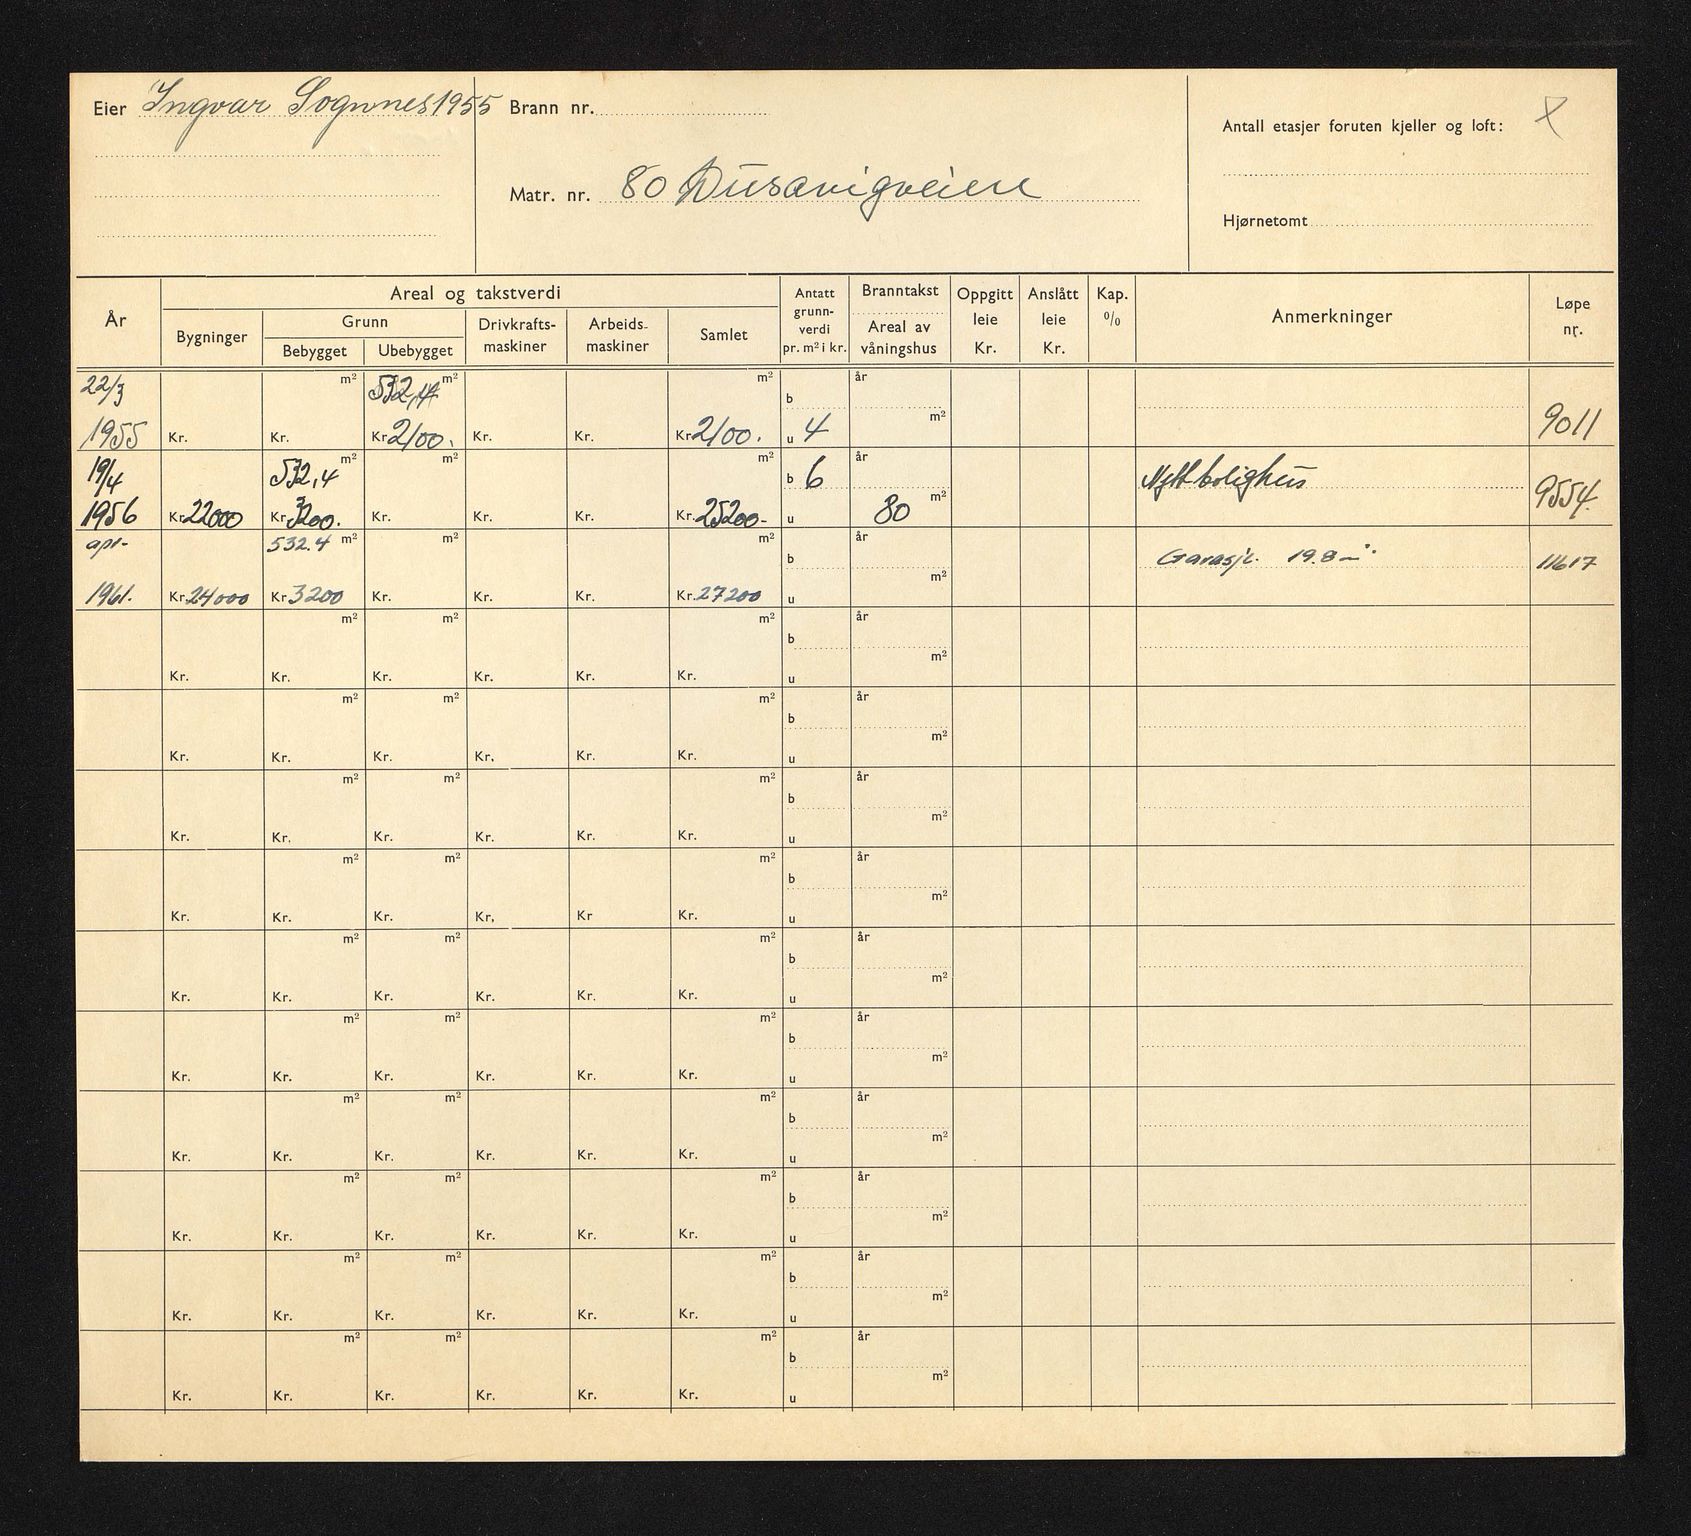 Eier Ingvar Sognnes 1955
Brann nr.
Matr. nr. 80 Dusavigveien
Antall etasjer foruten kjeller og loft:
Hjørnetomt
År
Areal og takstverdi
Bygninger
Grunn
Bebygget Ubebygget
Drivkrafts-
maskiner
Arbeids-
maskiner
Samlet
Antatt
grunn-
verdi
pr. m² i kr.
Branntakst
Areal av
våningshus
Oppgitt
leie
Kr.
Anslått
leie
Kr.
Kap.
%
Anmerkninger
Løpe
nr.
22/3 m² 532,4 m² m² b år m²
1955 Kr. Kr. Kr. 2100. Kr. Kr. Kr. 2100. u 4 9011
19/4 532,4 m² m² m² b 6 år Nytt bolighus
1956 Kr. 22000 Kr. 3200. Kr. Kr. Kr. Kr. 25200- u 80 m² 9554.
apr- 532.4 m² m² m² b år m² Garasje. 19.8 m² 11617
1961. Kr. 24000 Kr. 3200 Kr. Kr. Kr. Kr. 27200 u
m² m² m² b år m²
Kr. Kr. Kr. Kr. Kr. Kr. u
m² m² m² b år m²
Kr. Kr. Kr. Kr. Kr. Kr. u
m² m² m² b år m²
Kr. Kr. Kr. Kr. Kr. Kr. u
m² m² m² b år m²
Kr. Kr. Kr. Kr. Kr Kr. u
m² m² m² b år m²
Kr. Kr. Kr. Kr. Kr. Kr. u
m² m² m² b år m²
Kr. Kr. Kr. Kr. Kr. Kr. u
m² m² m² b år m²
Kr. Kr. Kr. Kr. Kr. Kr. u
m² m² m² b år m²
Kr. Kr. Kr. Kr. Kr. Kr. u
m² m² m² b år m²
Kr. Kr. Kr. Kr. Kr. Kr. u
m² m² m² b år m²
Kr. Kr. Kr. Kr. Kr. Kr. u